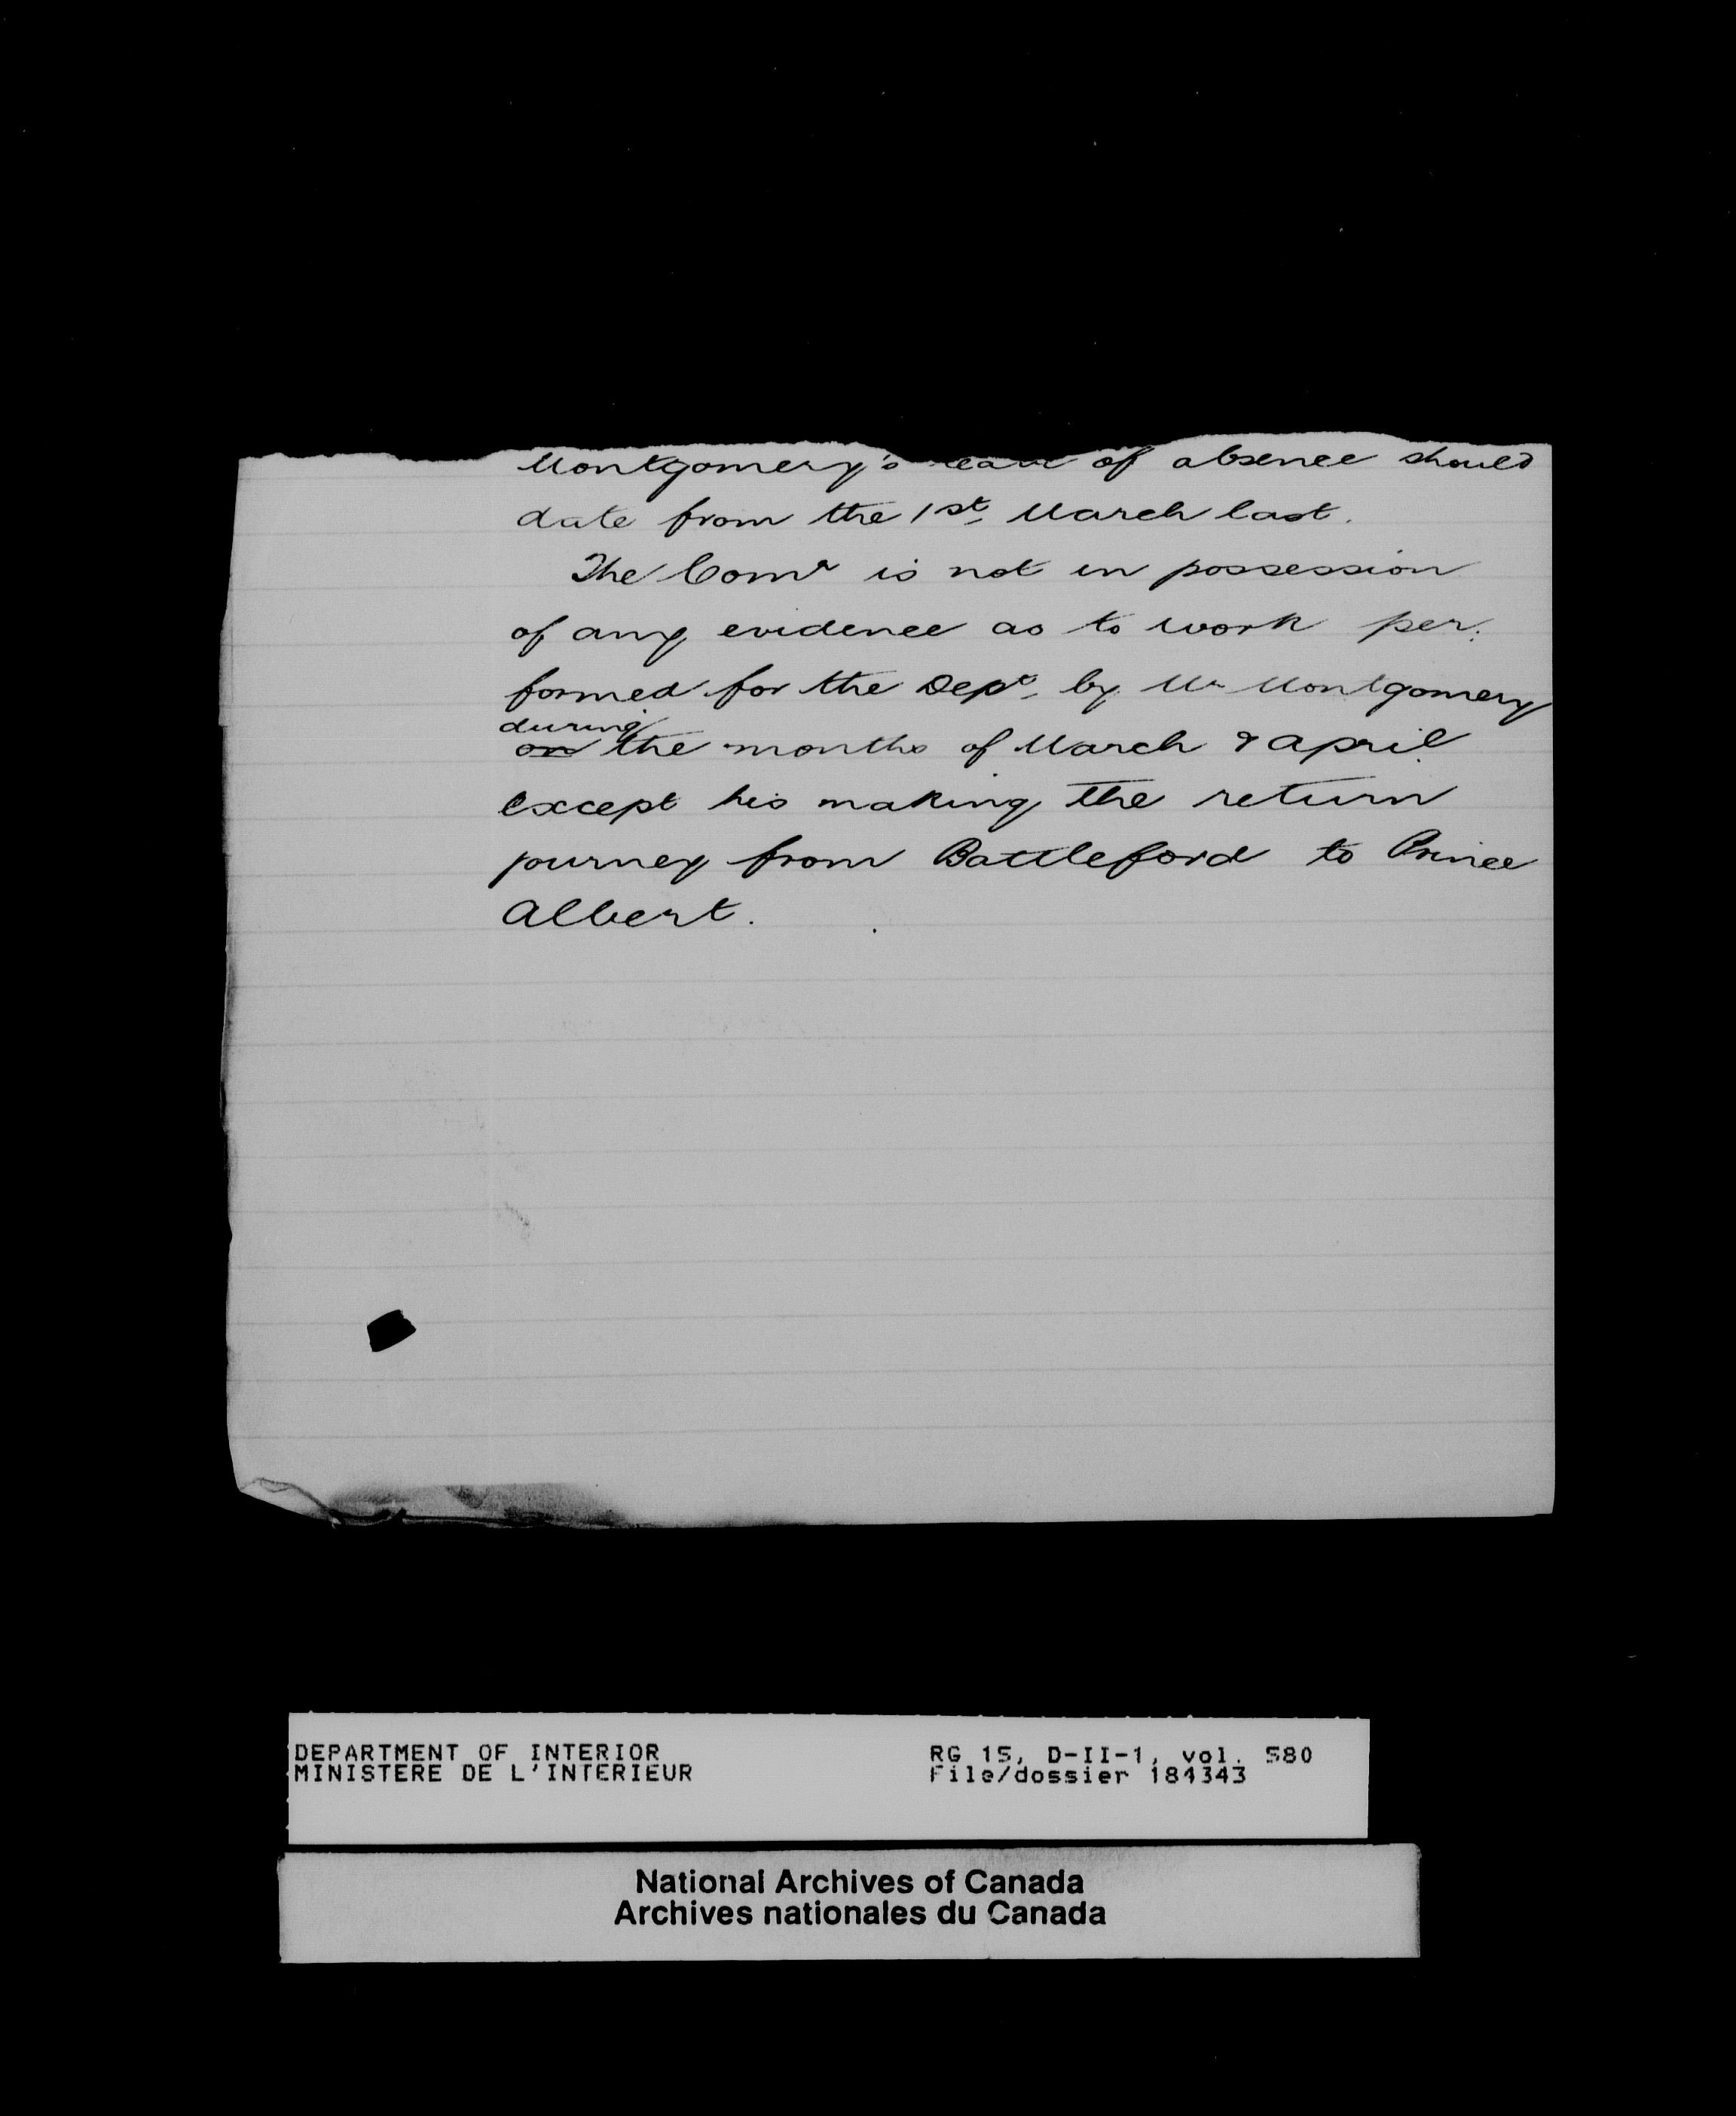 Montgomery's leave of absence should
date from the 1st March last.
The Comr is not in possession
of any evidence as to work per.
formed for the Dept. by Mr Montgomery
during
on the months of March & April
except his making the return
journey from Battleford to Prince
Albert.
DEPARTMENT OF INTERIOR
MINISTERE DE L'INTERIEUR
RG 15, D-II-1, vol. 580
File/dossier 184343
National Archives of Canada
Archives nationales du Canada